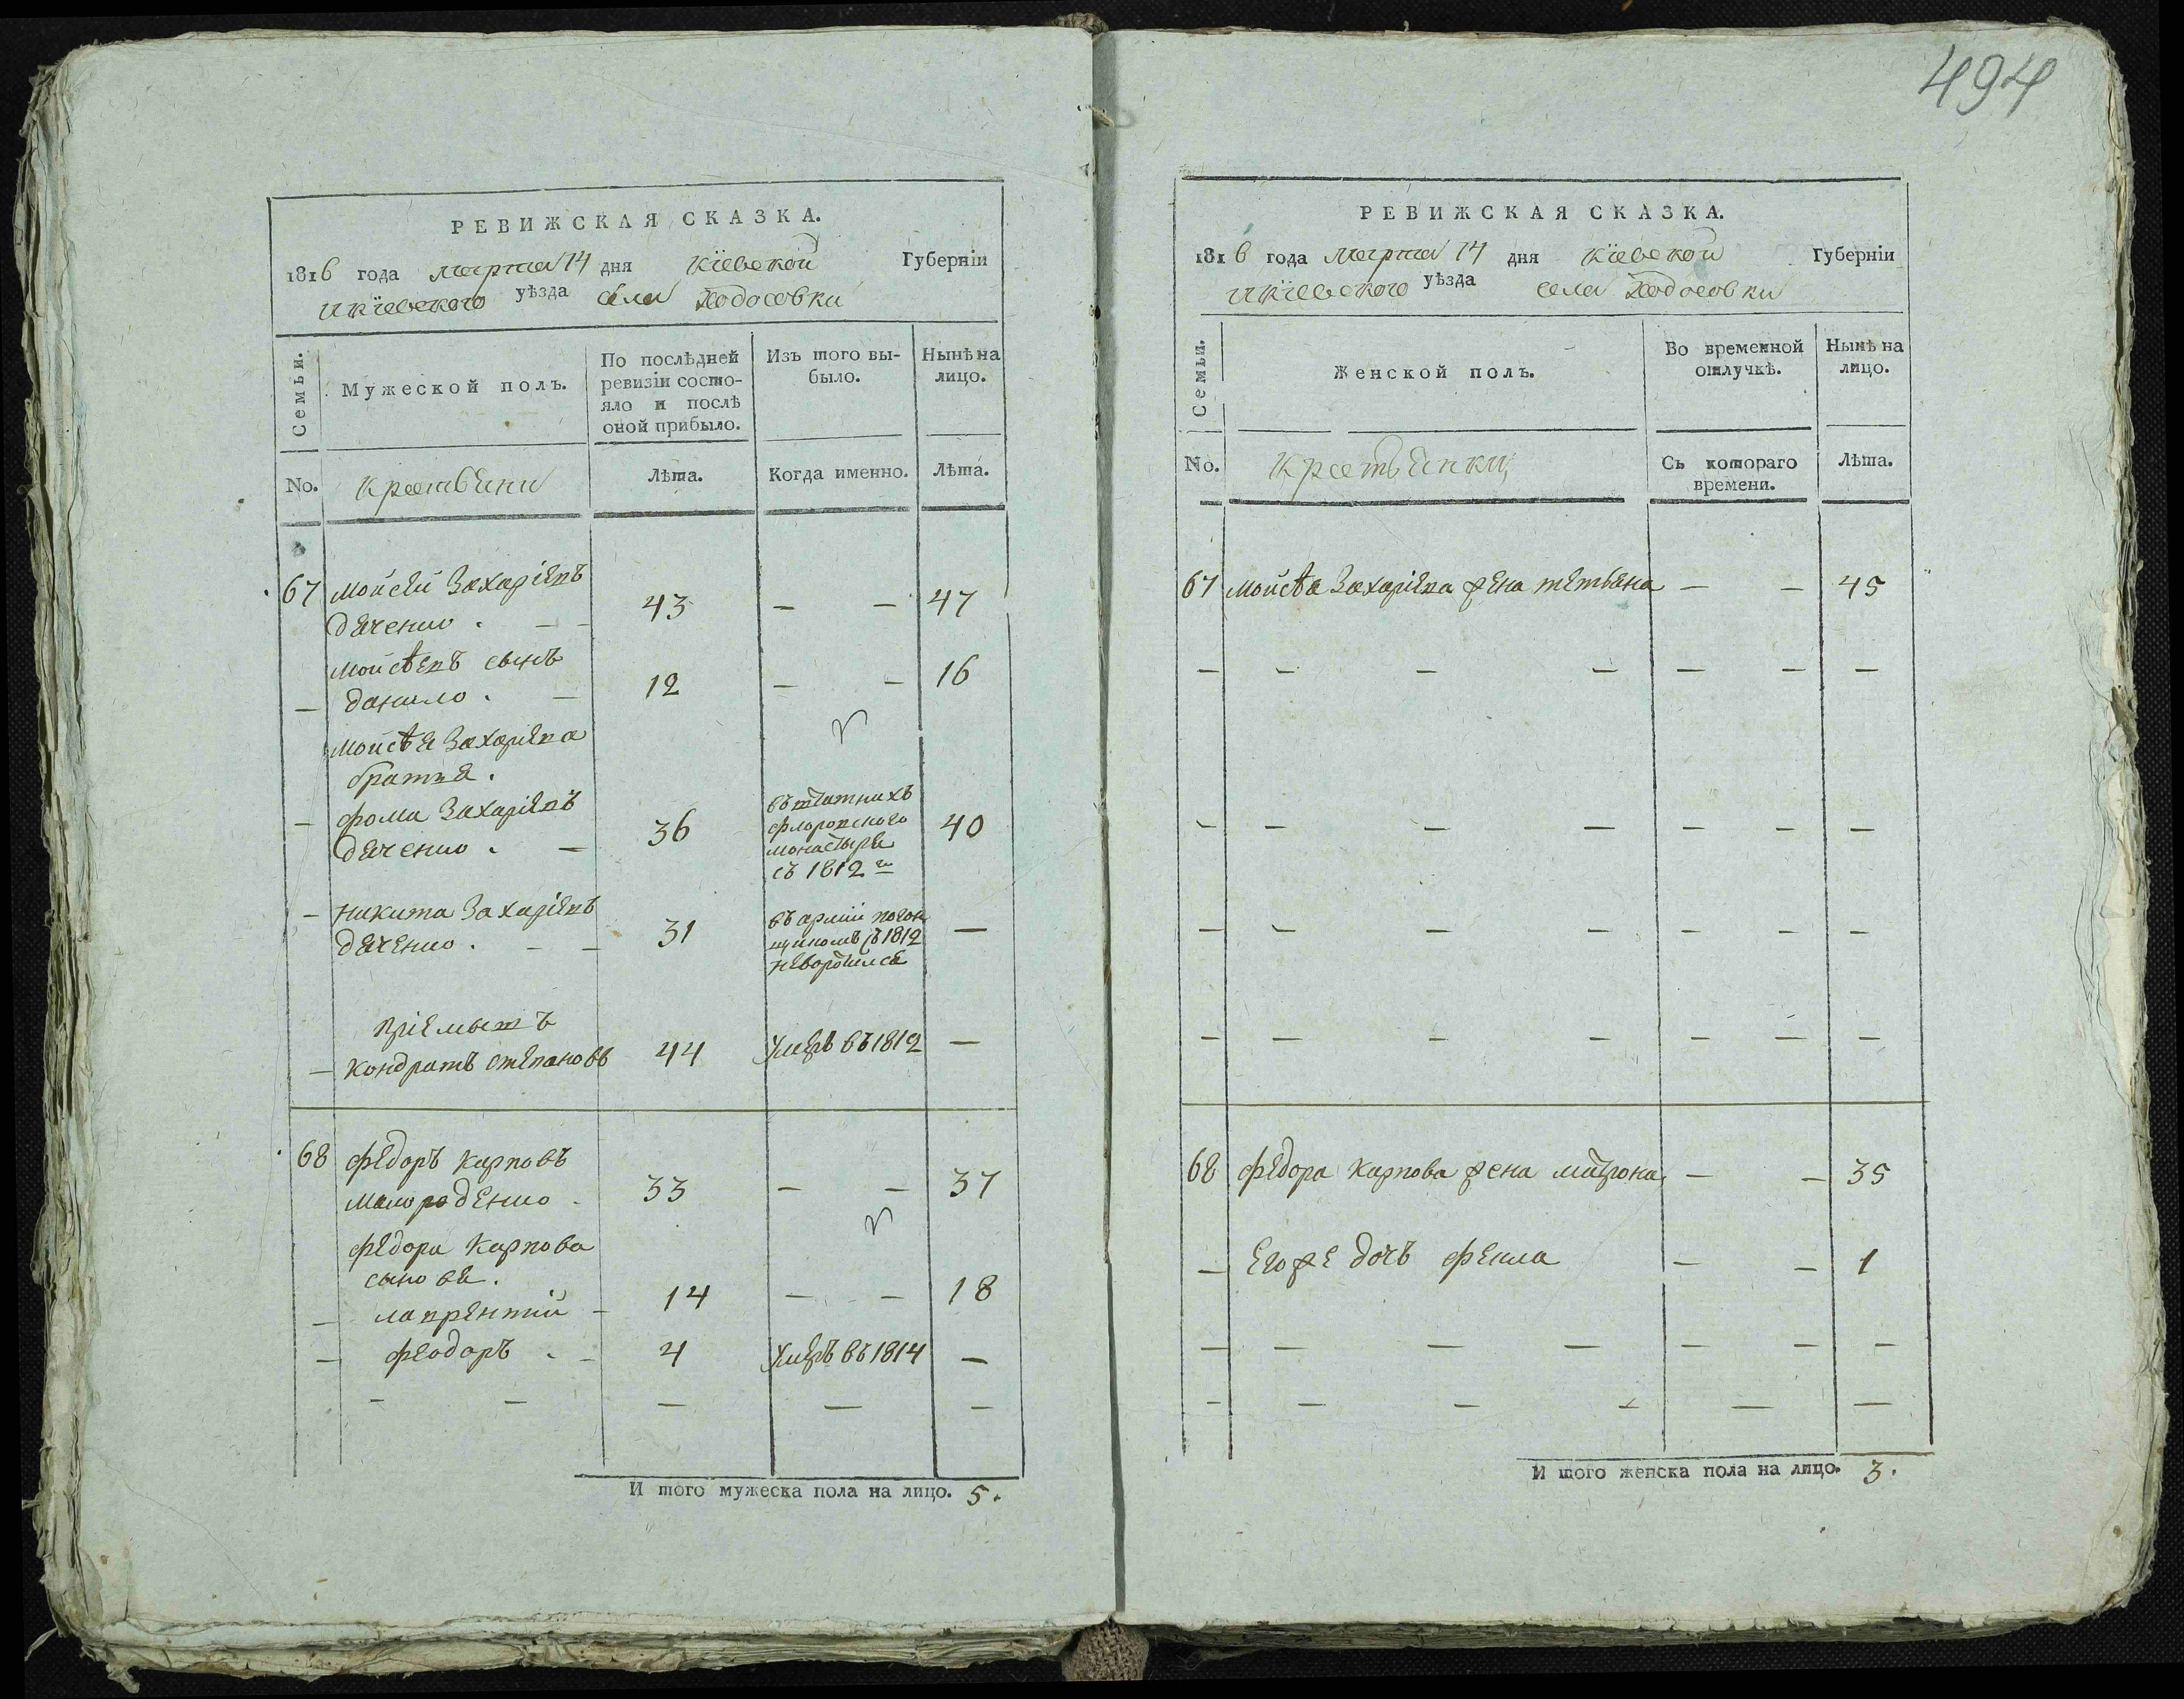 494
РЕВИЖСКАЯ СКАЗКА.
1816 года марта 14 дня Кіевской Губерніи
и Кіевского уѣзда села Ходосовки
Семьи.
Мужеской полъ.
По послѣдней ревизіи состо-
яло и послѣ
оной прибыло.
Изъ того вы-
было.
Нынѣ на
лицо.
No.
Крествяни
Лѣта.
Когда именно.
Лѣта.
67 Мойсей Захаріевъ
Дяченко . — — 43 — — 47
Мойсѣевъ сынъ
— Данило . — 12 — — 16
Мойсѣя Захаріева
братья .
— Фома Захаріевъ
Дяченко . — 36 40
въ штатнихъ
флоровского
монастыря
съ 1812 го
— Никита Захаріевъ
Дяченко . — — 31 —
въ арміи погон
щикомъ съ 1812
неворотился
Пріемышъ
— Кондратъ Степановъ 44 Умеръ въ 1812 —
68 Федоръ Карповъ
Малороденко . 33 — — 37
Федора Карпова
сыновя .
— Лаврентій — 14 — — 18
— Феодоръ . — 4 Умеръ въ 1814 —
— — — — —
И того мужеска пола на лицо. 5.
РЕВИЖСКАЯ СКАЗКА.
1816 года марта 14 дня Кіевской Губерніи
и Кіевского уѣзда села Ходосовки
Семьи.
Женской полъ.
Во временной
отлучкѣ.
Нынѣ на
лицо.
No.
Крествянки
Съ котораго
времени.
Лѣта.
67 Мойсѣя Захаріева жена Тетьяна — — 45
— — — — — — —
— — — — — — —
— — — — — — —
— — — — — — —
68 Федора Карпова жена Матрона — — 35
— Его же дочъ Фекла — — 1
— — — — — — —
— — — — — —
И того женска пола на лицо. 3.